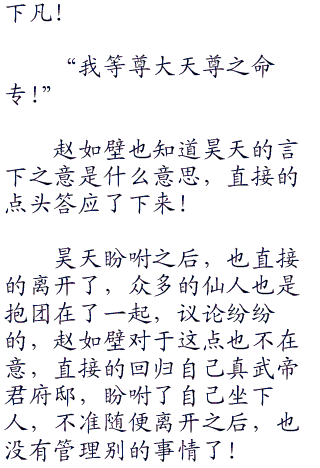 下凡！
“我等尊大天尊之命
专！”
赵如壁也知道昊天的言
下之意是什么意思，直接的
点头答应了下来！
昊天盼咐之后，也直接
的离开了，众多的仙人也是
抱团在了一起，议论纷纷
的，赵如壁对于这点也不在
意，直接的回归自己真武帝
君府邸，盼咐了自己坐下
人，不准随便离开之后，也
没有管理别的事情了！